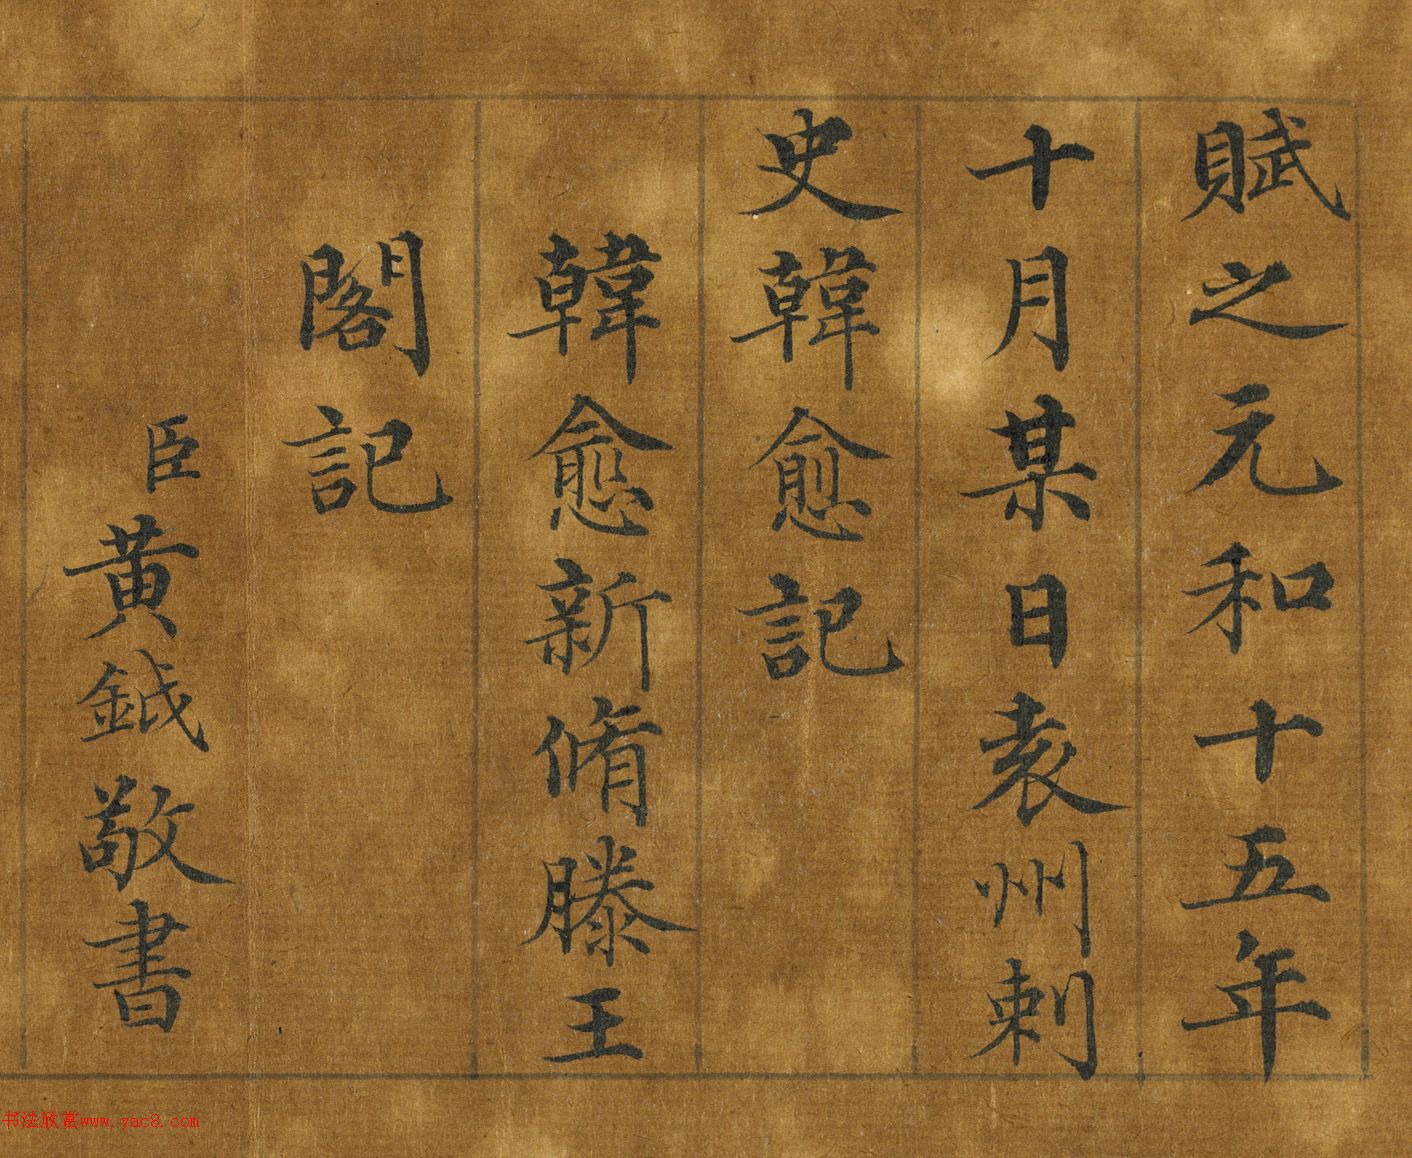 賦之元和十五年
十月某日袁州刺
史韓愈記
韓愈新脩滕王
閣記
臣黃鉞敬書
书法欣赏www.yac8.com